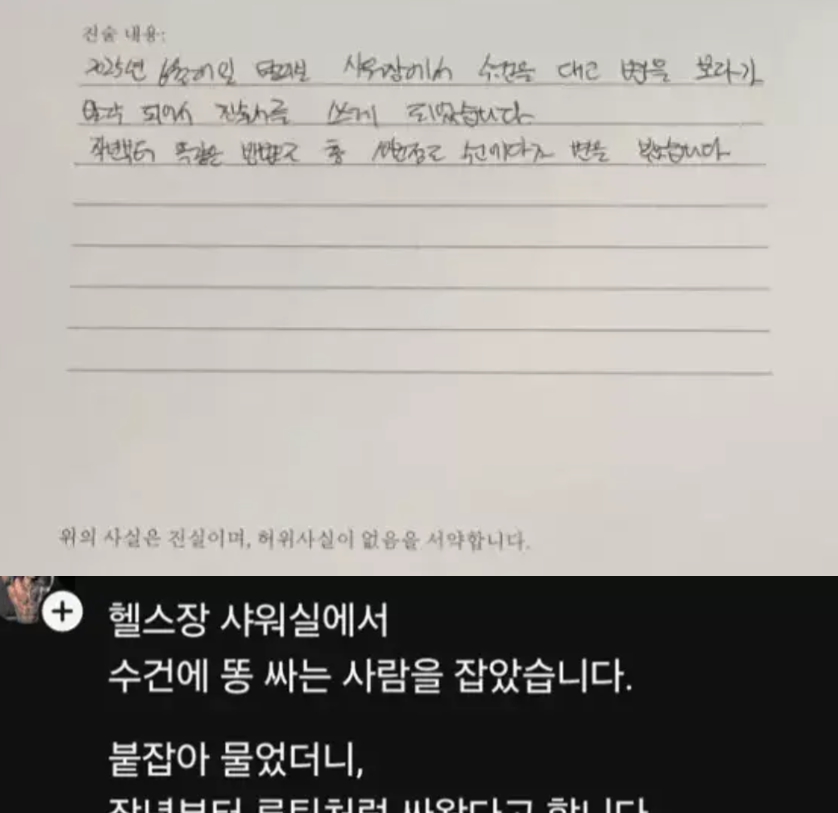 진술 내용:
2025년 샤워장에서 수건을 대고 변을 보다가
발각 되어서 진술서를 쓰게 되었습니다
작년부터 똑같은 방법으로 총 수건에다가 변을 보았습니다
위의 사실은 진실이며, 허위사실이 없음을 서약합니다.
헬스장 샤워실에서
수건에 똥 싸는 사람을 잡았습니다.
붙잡아 물었더니,
작년부터 루틴처럼 싸왔다고 합니다